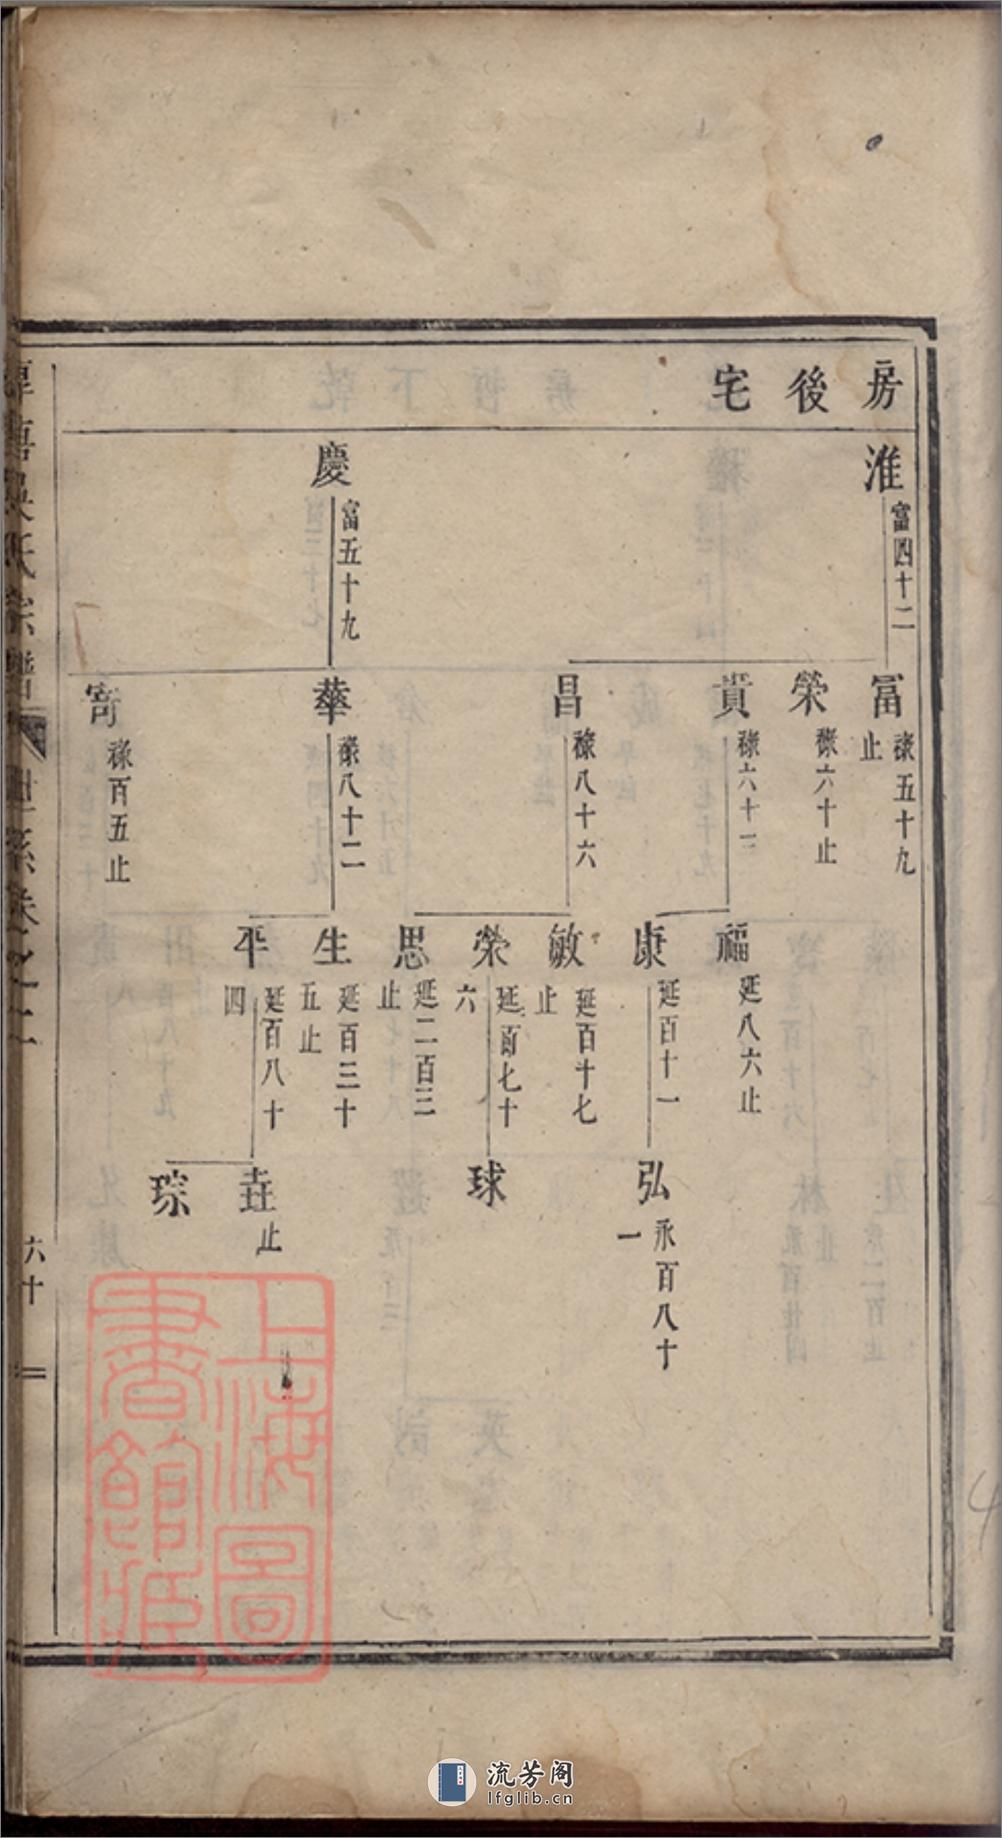 房後宅
淮 富四十二
富 祿五十九止
榮 祿六十止
貴 祿六十一
昌 祿八十六
慶 富五十九
華 祿八十二
寄 祿百五止
福 延八六止
康 延百十一
敏 延百十七止
榮 延百七十六
思 延二百三止
生 延百三十五止
平 延百八十四
弘 永百八十一
球
珪 止
琮
氏宗譜
世系卷之二
六十
上海圖書館藏
流芳阁
lfglib.cn